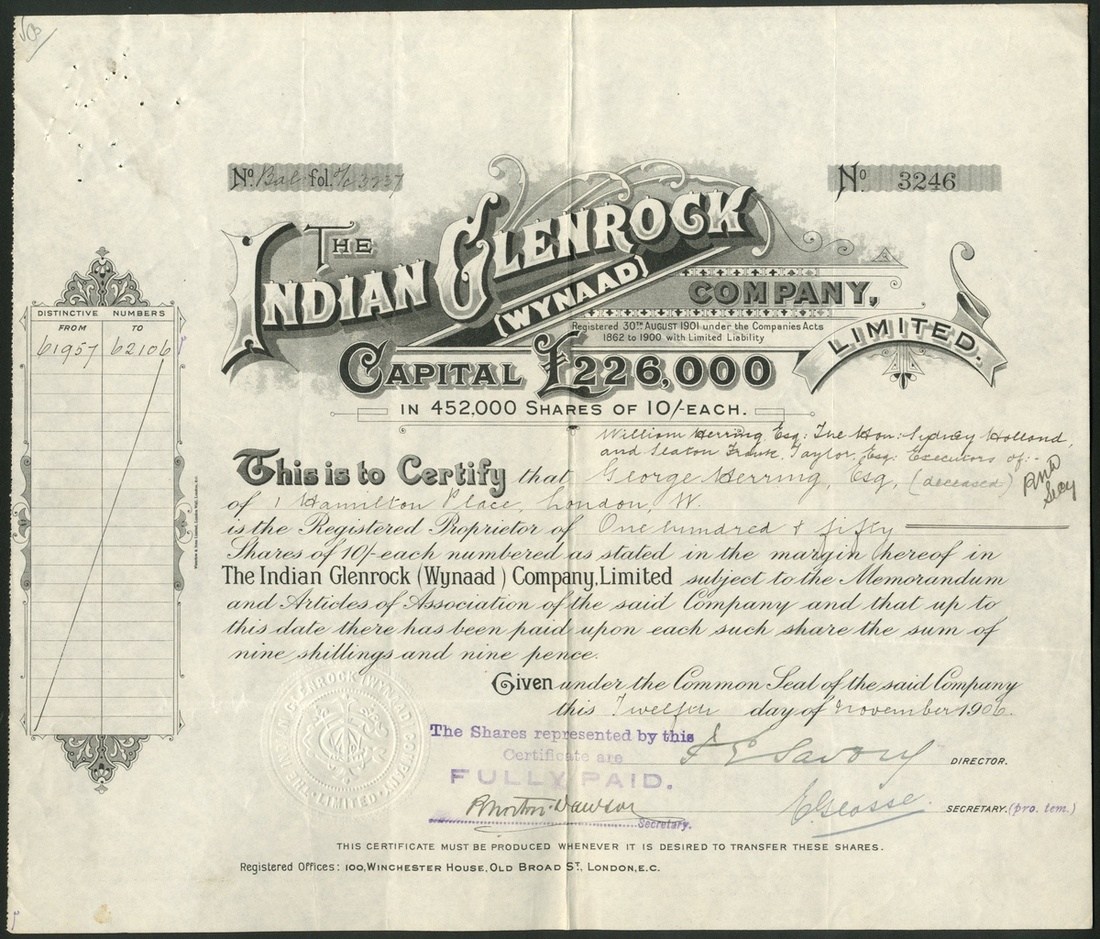 No. Bal: fol. a/c 3237
No. 3246
THE
INDIAN GLENROCK
(WYNAAD)
COMPANY,
LIMITED.
Registered 30TH AUGUST 1901 under the Companies Acts
1862 to 1900 with Limited Liability
CAPITAL £226,000
IN 452,000 SHARES OF 10/- EACH.
DISTINCTIVE NUMBERS
FROM TO
61957 62106
William Herring Esq: The Hon: Sydney Holland,
and Seaton Frank Taylor, Esq: Executors of:-
This is to Certify that George Herring, Esq, (deceased)
of 1 Hamilton Place, London, W.
is the Registered Proprietor of One hundred & fifty
Shares of 10/- each numbered as stated in the margin hereof in
The Indian Glenrock (Wynaad) Company, Limited subject to the Memorandum
and Articles of Association of the said Company and that up to
this date there has been paid upon each such share the sum of
nine shillings and nine pence.
Given under the Common Seal of the said Company
this Twelfth day of November 1906.
THE INDIAN GLENROCK (WYNAAD) COMPANY LIMITED
The Shares represented by this
Certificate are
FULLY PAID.
Secretary.
Savory DIRECTOR.
SECRETARY. (pro. tem.)
THIS CERTIFICATE MUST BE PRODUCED WHENEVER IT IS DESIRED TO TRANSFER THESE SHARES.
Registered Offices: 100, WINCHESTER HOUSE, OLD BROAD ST, LONDON, E.C.